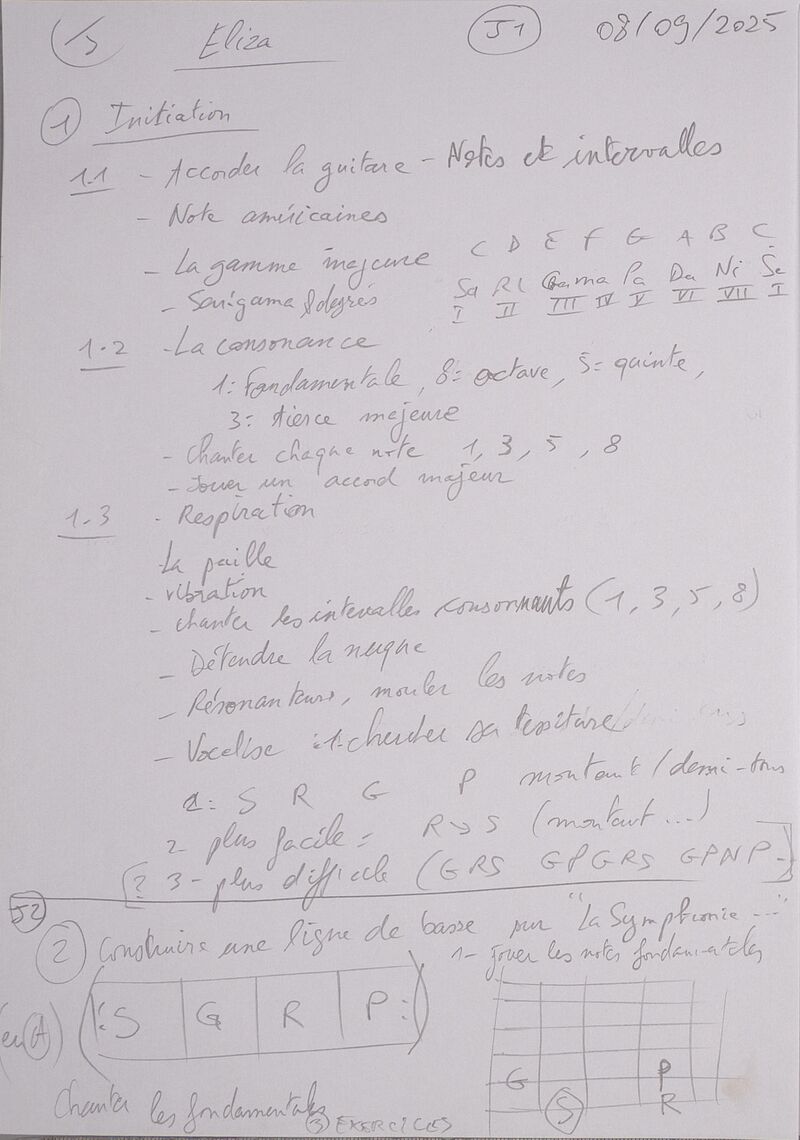 Eliza J1 08/09/2025
① Initiation
1.1 - Accorder la guitare - Notes et intervalles
- Note américaines
- La gamme majeure C D E F G A B C
- Sarigama & degrés Sa Ri Ga ma Pa Da Ni Sa
I II III IV V VI VII I
1.2 - La consonance
1 = Fondamentale, 8 = octave, 5 = quinte,
3 = tierce majeure
- Chanter chaque note 1, 3, 5, 8
- Jouer un accord majeur
1.3 - Respiration
- La paille
- vibration
- chanter les intervalles consonnants (1, 3, 5, 8)
- Détendre la nuque
- Résonanteurs, mouler les notes
- Vocalise : 1- chercher sa tessiture
1: S R G P montant / demi-tons
2- plus facile = R → S (montant ...)
[? 3- plus difficile (GRS GPGRS GPNP-]
J2
② Construire une ligne de basse sur "La Symphonie ..."
1- jouer les notes fondamentales
(en A) (: S G R P :)
G S P
R
Chanter les fondamentales
③ EXERCICES